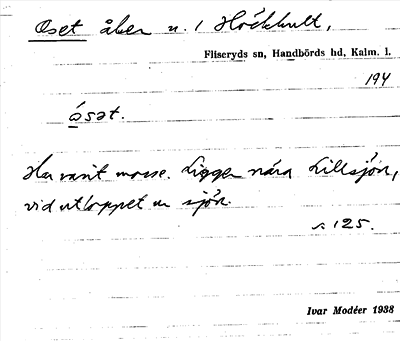 Oset åker n. 1 Höckhult,
Fliseryds sn, Handbörds hd, Kalm. l.
194
ósət.
Har varit mosse. Ligger nära Lillsjön,
vid utloppet ur sjön.
s 125.
Ivar Modéer 1938